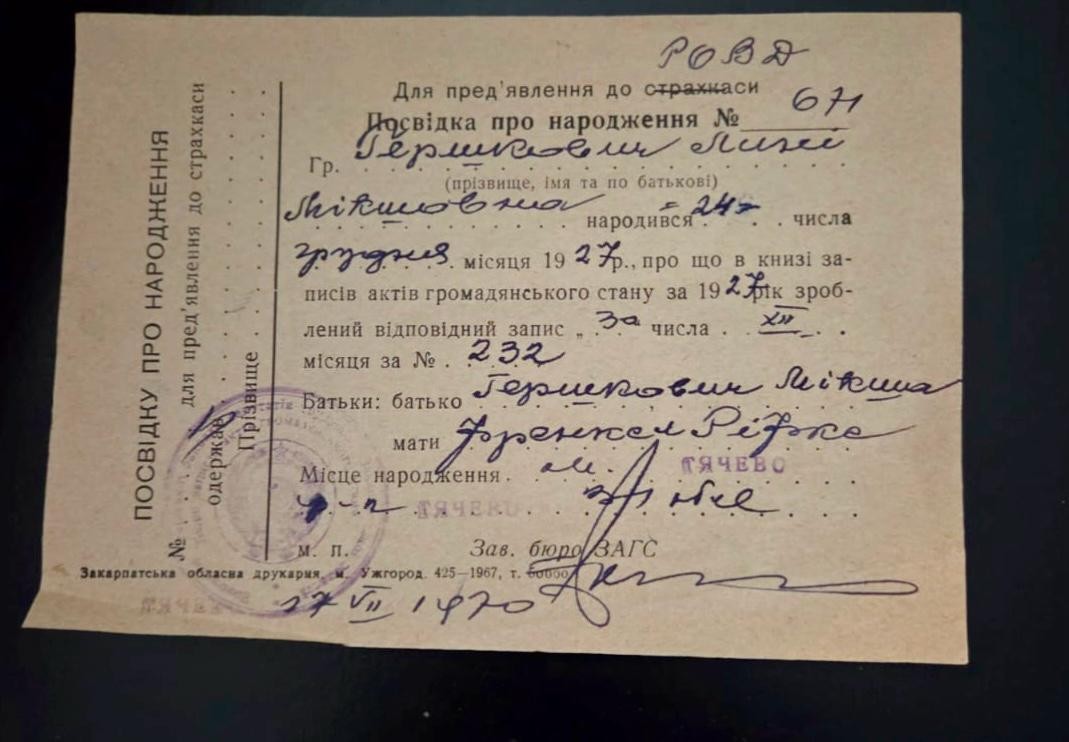 РОВД
Для пред'явлення до страхкаси
Посвідка про народження № 671
Гр. Гершкович Лині
(прізвище, імя та по батькові)
Мікшовна народився 24 числа
грудня місяця 1927 р., про що в книзі за-
писів актів громадянського стану за 1927 рік зроб-
лений відповідний запис „ За числа XII
місяця за № 232
Батьки: батько Гершкович Мікша
мати Френкел Ріфке
Місце народження м. ТЯЧЕВО
р-н ТЯЧЕВО
м. п. Зав. бюро ЗАГС
Закарпатська обласна друкарня, м. Ужгород. 425—1967, т.
17 VII 1970
ПОСВІДКУ ПРО НАРОДЖЕННЯ
для пред'явлення до страхкаси
№ одержав
Прізвище